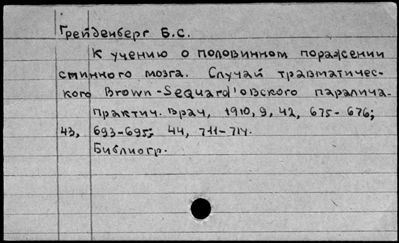 Грейденберг Б.С.
К учению о половинном поражении
спинного мозга. Случай травматичес-
кого Brown-Sequard'овского паралича.
Практич. врач, 1910, 9, 42, 675-676;
43, 693-695; 44, 711-714.
Библиогр.